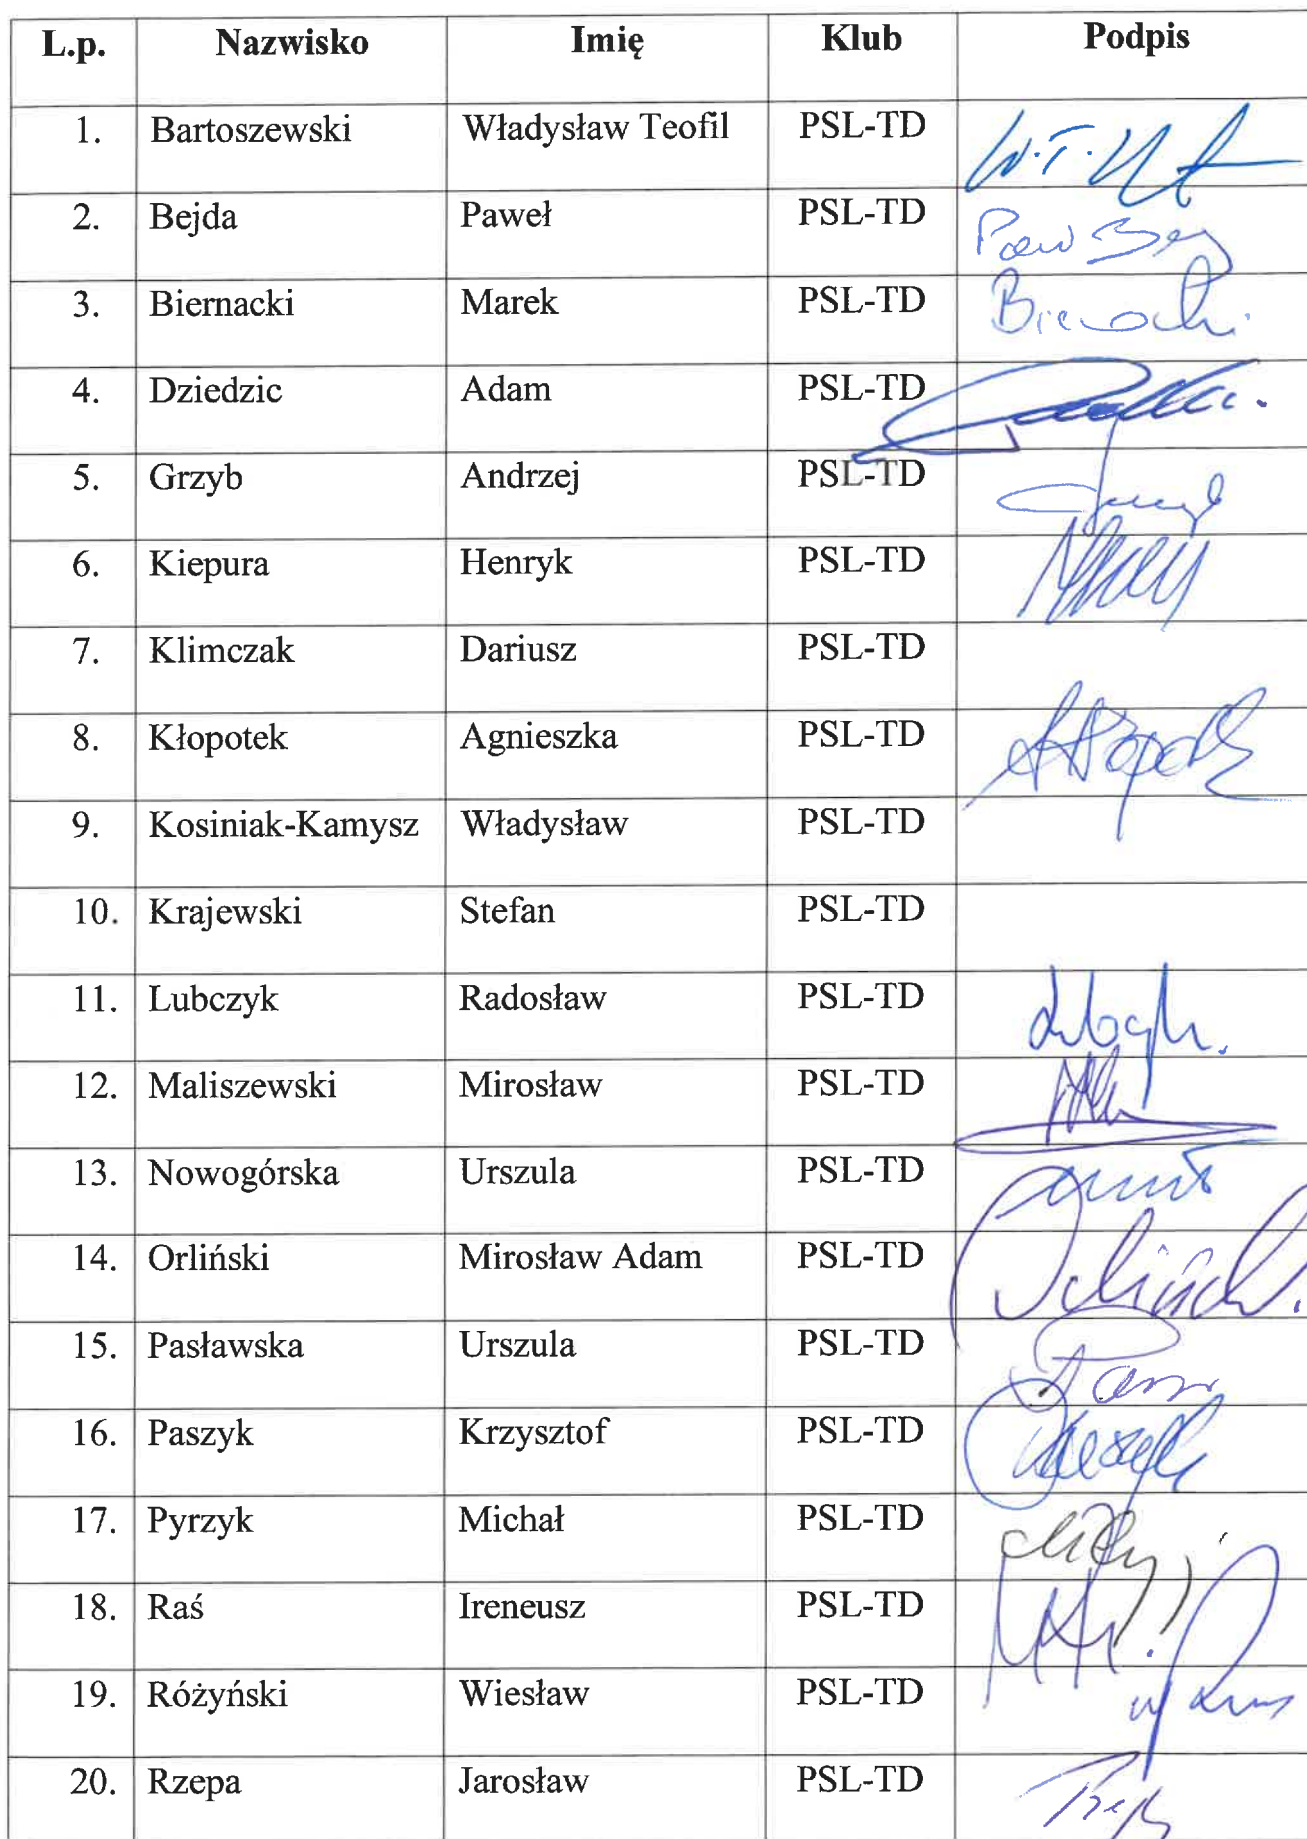 L.p. Nazwisko Imię Klub Podpis
1. Bartoszewski Władysław Teofil PSL-TD
2. Bejda Paweł PSL-TD
3. Biernacki Marek PSL-TD
4. Dziedzic Adam PSL-TD
5. Grzyb Andrzej PSL-TD
6. Kiepura Henryk PSL-TD
7. Klimczak Dariusz PSL-TD
8. Kłopotek Agnieszka PSL-TD
9. Kosiniak-Kamysz Władysław PSL-TD
10. Krajewski Stefan PSL-TD
11. Lubczyk Radosław PSL-TD
12. Maliszewski Mirosław PSL-TD
13. Nowogórska Urszula PSL-TD
14. Orliński Mirosław Adam PSL-TD
15. Pasławska Urszula PSL-TD
16. Paszyk Krzysztof PSL-TD
17. Pyrzyk Michał PSL-TD
18. Raś Ireneusz PSL-TD
19. Różyński Wiesław PSL-TD
20. Rzepa Jarosław PSL-TD